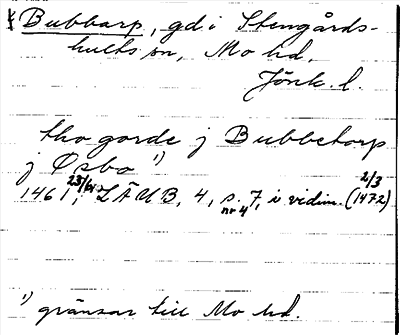 Bubbarp, gd. i Stengårds-
hults sn, Mo hd.
Jönk. l.
tho gorde j Bubbetorp
j Øsbo ¹)
1461 23/6, LÄUB, 4, s. 7, i vidim. (1472) 2/3
nr 4
¹) gränsar till Mo hd.